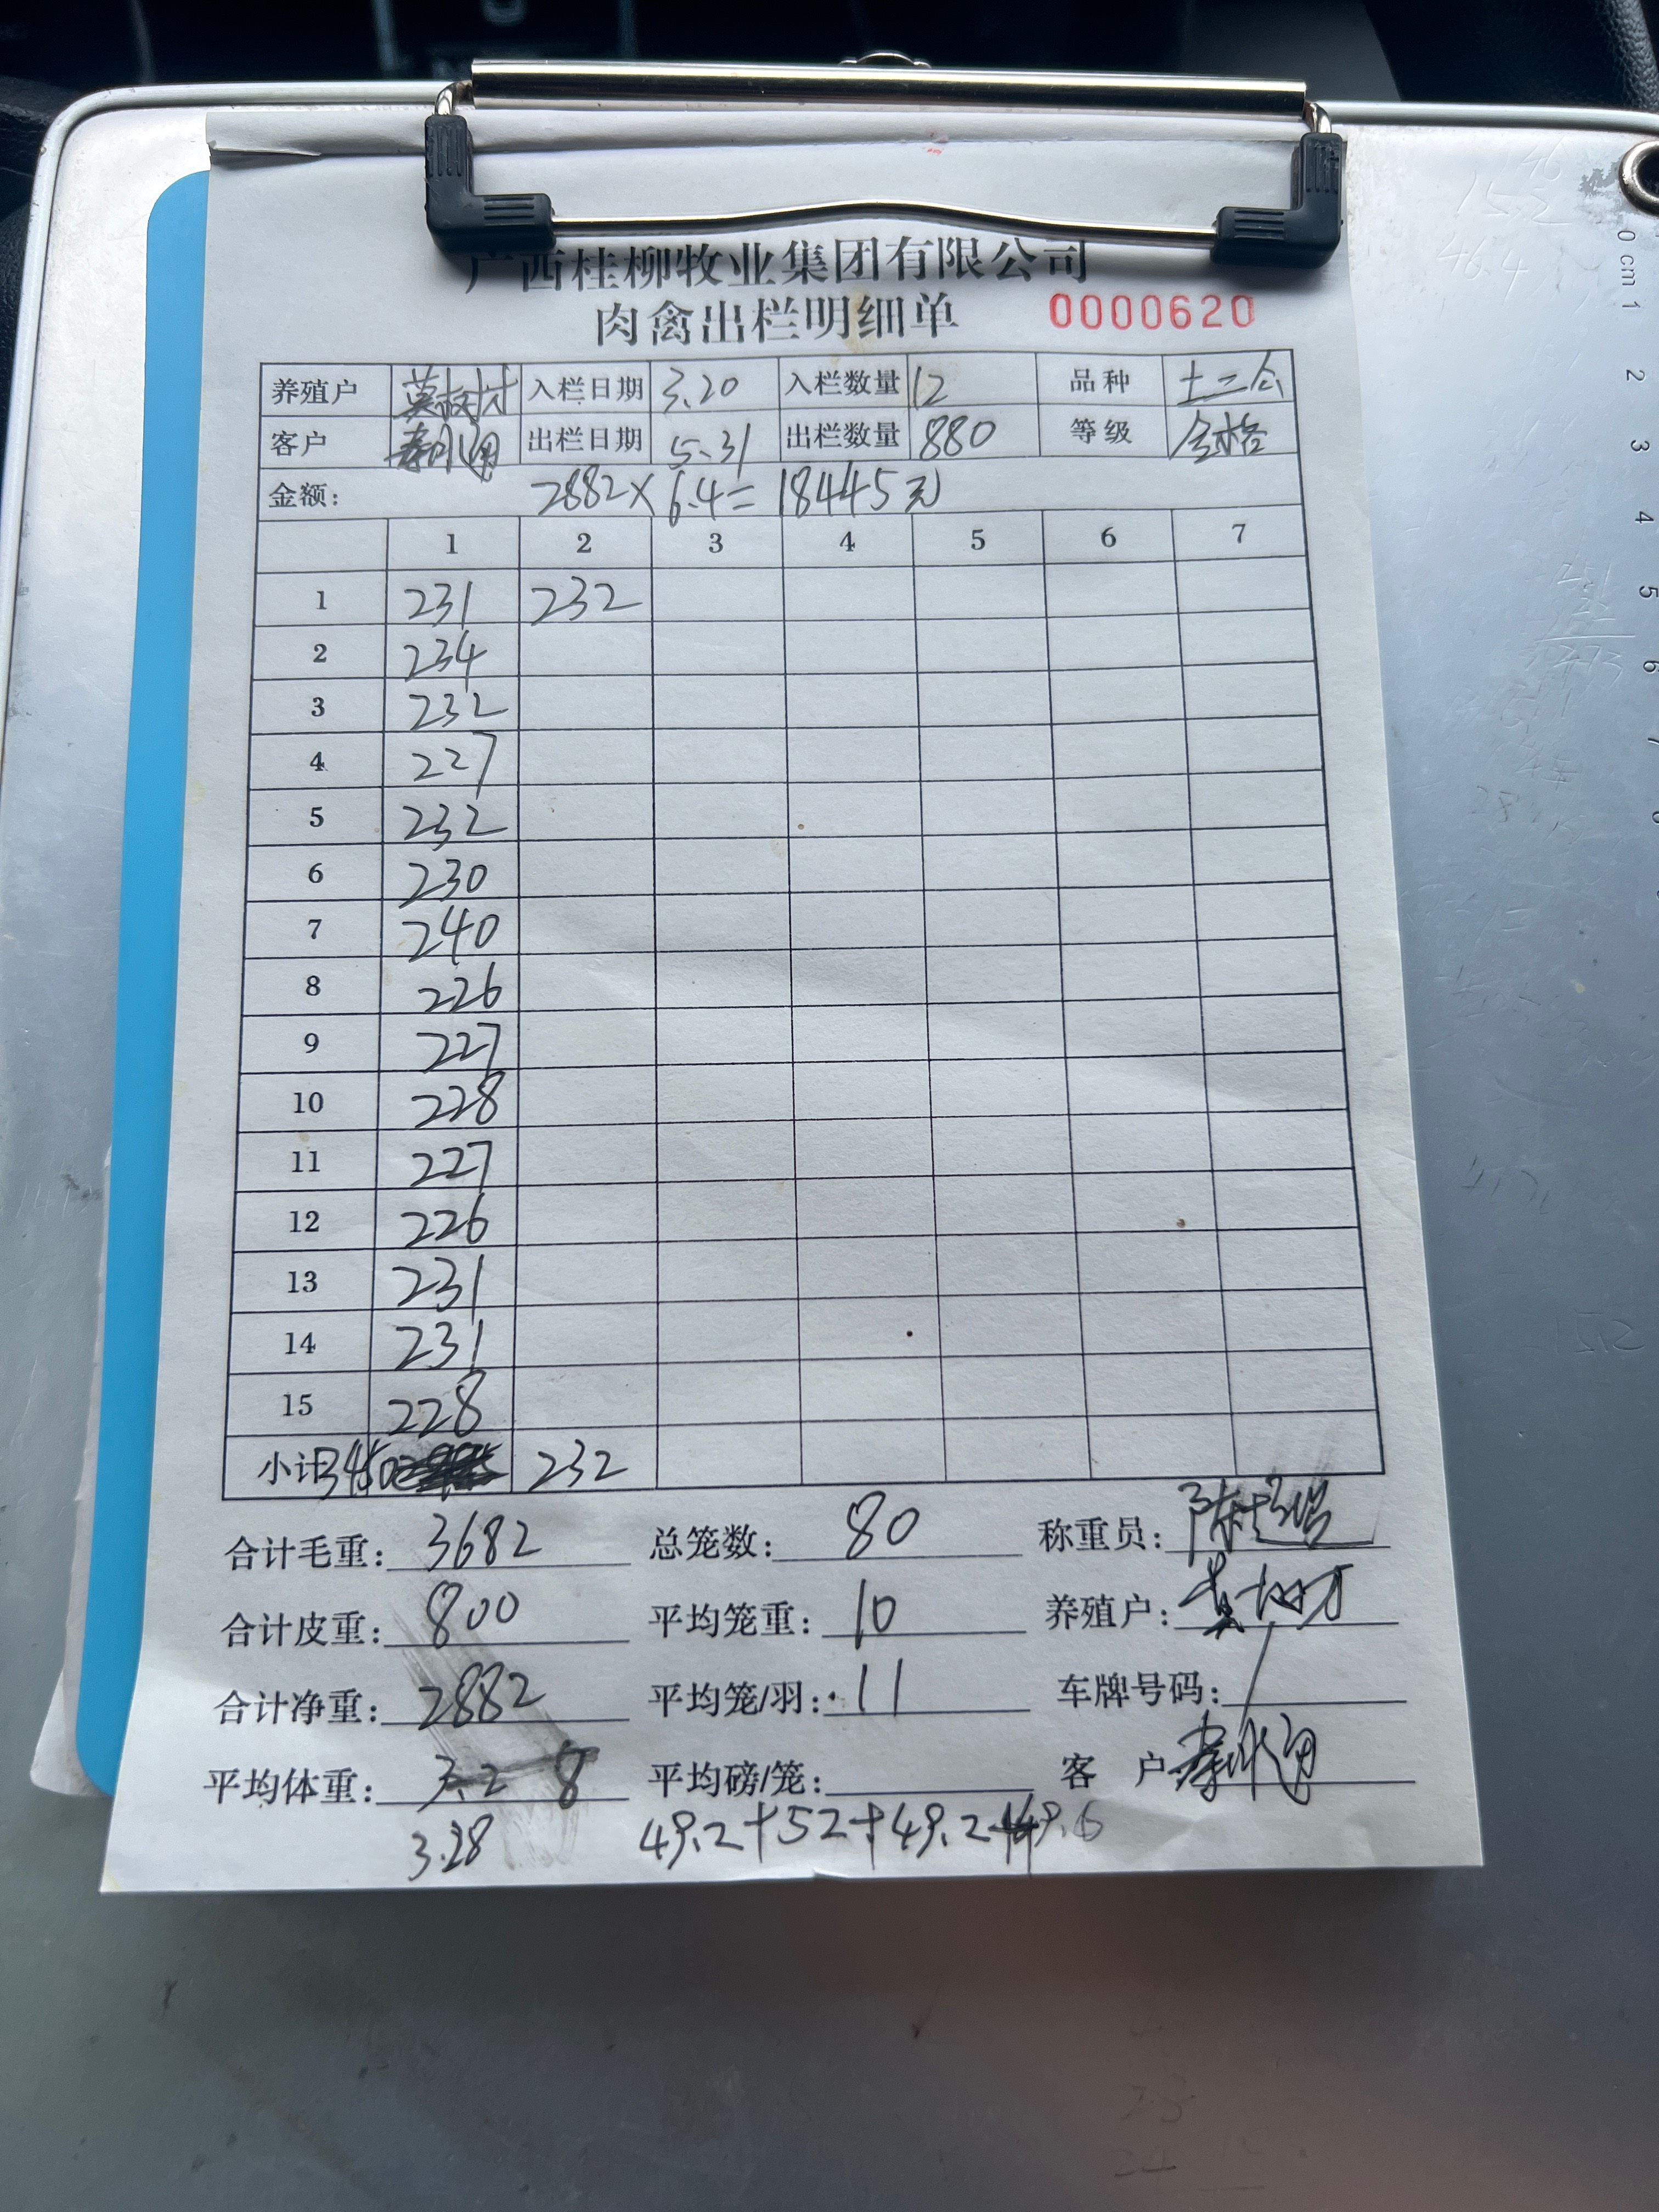 广西桂柳牧业集团有限公司
肉禽出栏明细单 0000620
养殖户 莫树才 入栏日期 3.20 入栏数量 12 品种 土二公
客户 秦永通 出栏日期 5.31 出栏数量 880 等级 合格
金额: 2882×6.4=18445元
1 2 3 4 5 6 7
1 231 232
2 234
3 232
4 227
5 232
6 230
7 240
8 226
9 227
10 228
11 227
12 226
13 231
14 231
15 228
小计 3450 232
合计毛重: 3682 总笼数: 80 称重员:
合计皮重: 800 平均笼重: 10 养殖户: 莫树才
合计净重: 2882 平均笼/羽: 11 车牌号码: /
平均体重: 3.28 平均磅/笼: 客户 秦永通
3.28 49.2+52+49.2+49.6
0 cm 1
2
3
4
5
6
7